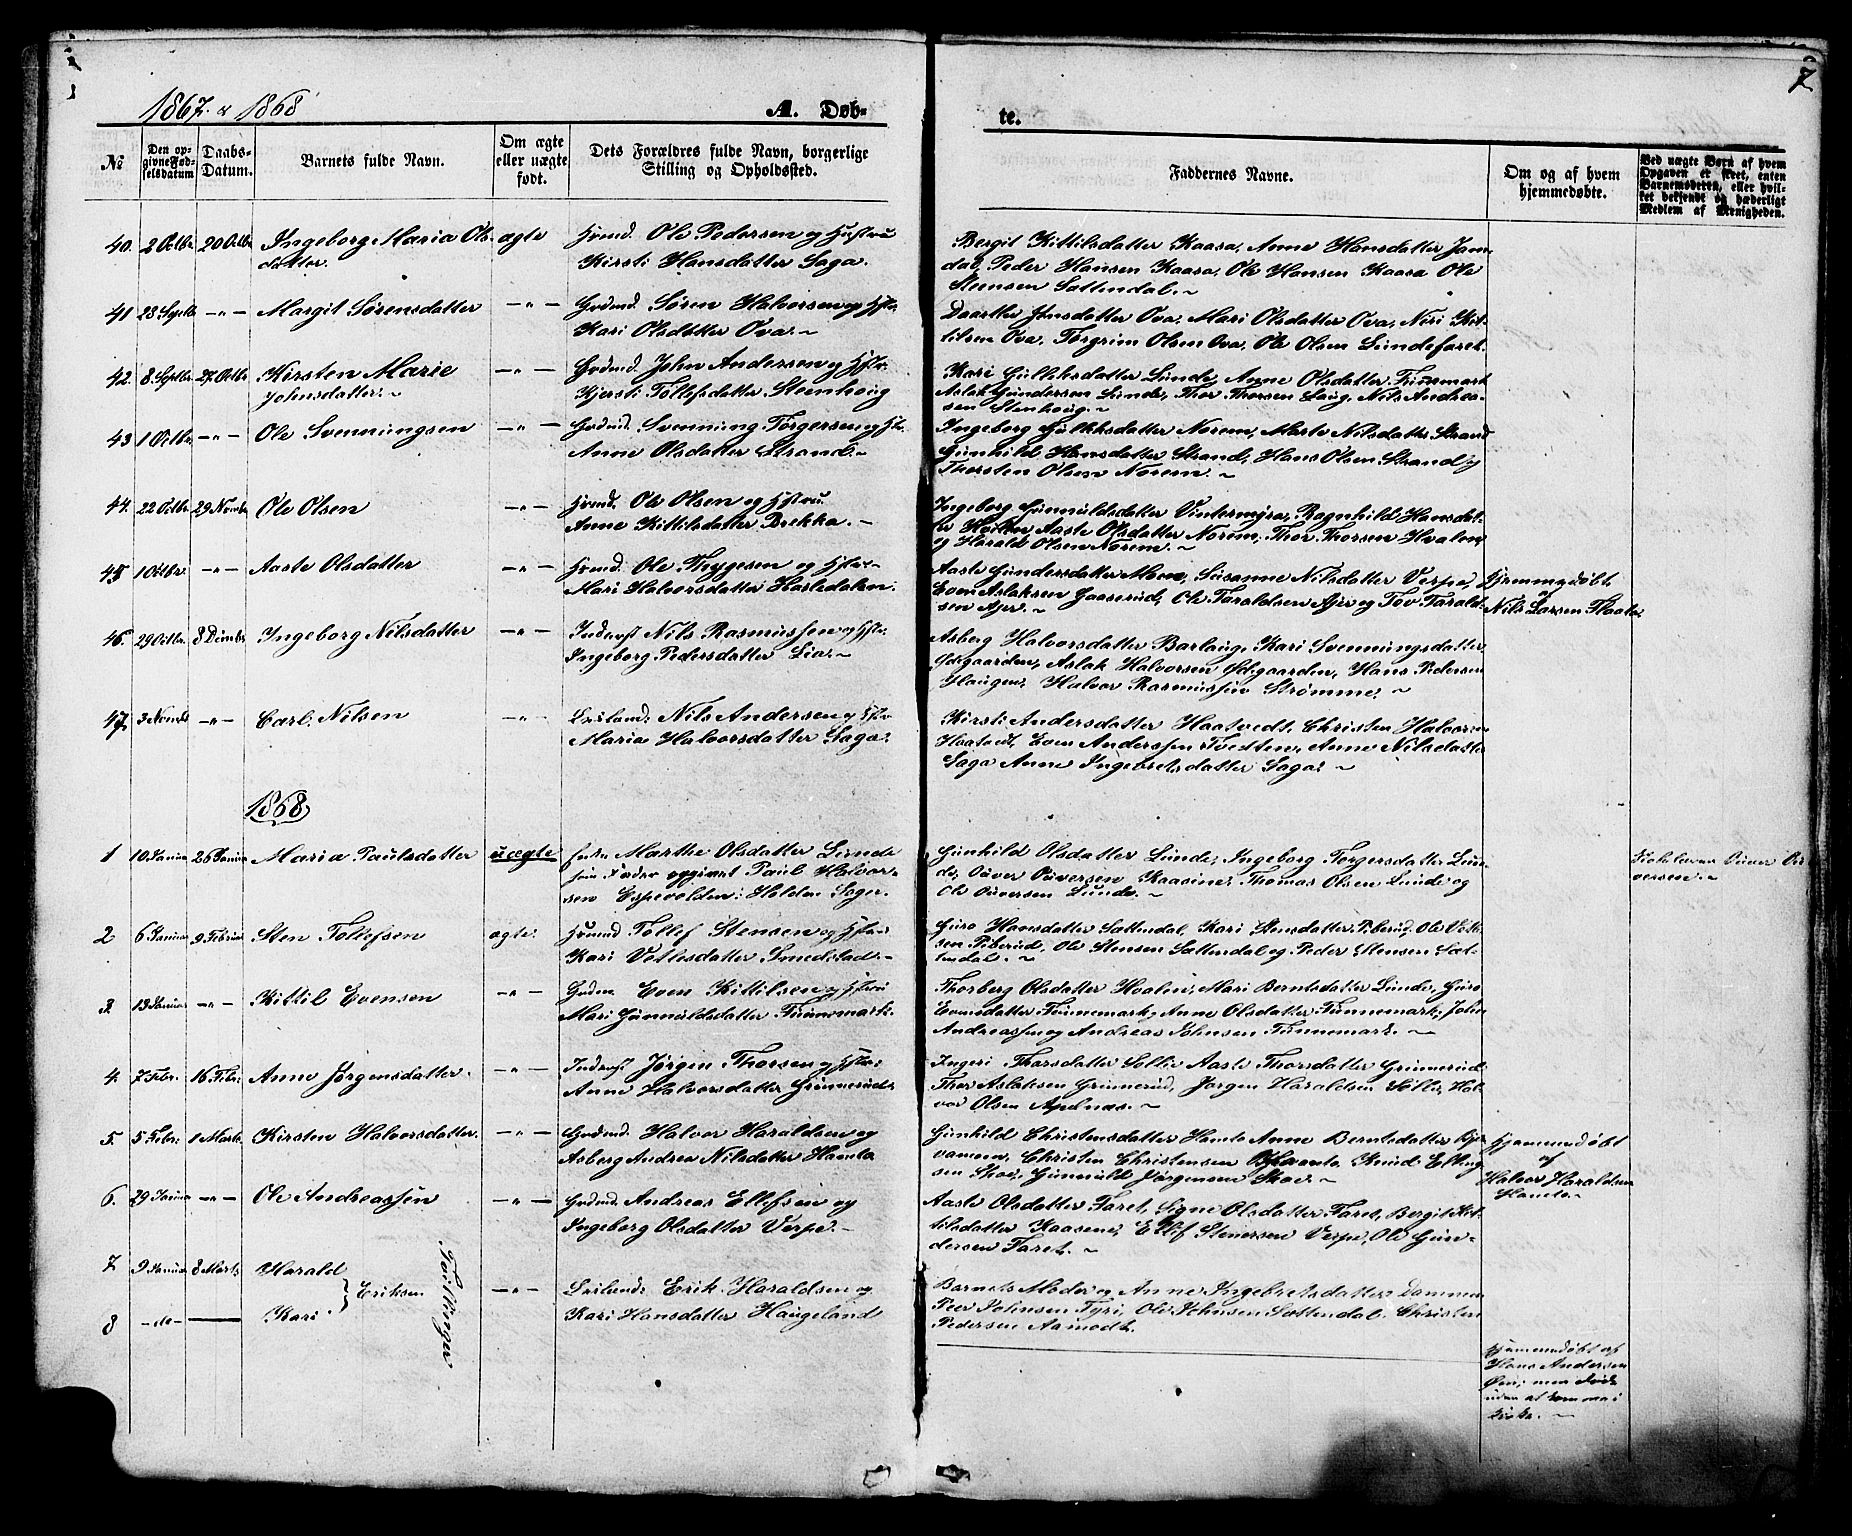 1867 & 1868
A. Døb-
te.
7
No
Den opgivne Fødselsdatum
Daabs-Datum.
Barnets fulde Navn.
Om ægte eller uægte født.
Dets Forældres fulde Navn, borgerlige Stilling og Opholdssted.
Faddernes Navne.
Om og af hvem hjemmedøbte.
Ved uægte Børn af hvem Opgaven er skeet, enten Barnemoderen, eller hvilket bekjendt og hæderligt Medlem af Menigheden.
40. 2 Octbr 20 Octbr Ingeborg Maria Ols- ægte Hmd. Ole Pedersen og Hustru
datter. Kirsti Hansdatter Saga.
Bergit Kittilsdatter Kaasa, Anne Hansdatter Jam-
dal, Peder Hansen Kaasa, Ole Hansen Kaasa Ole
Steensen Sattendal. ~
41 23 Septbr -"- Margit Sørensdatter -"- Grdmd. Søren Halvorsen og Hstr.
Kari Olsdatter Ova. ~
Daarthe Jensdatter Ova, Mari Olsdatter Ova, Niri Kit-
tilsen Ova, Torgrim Olsen Ova, Ole Olsen Lundefaret.
42. 8 Septbr 27 Octbr Kirsten Marie -"- Grdmd. John Andersen og Hstr.
Johnsdatter. ~ Kjersti Tollefsdatter Steenhoug
Kari Gulliksdatter Lunde, Anne Olsdatter Funnemark
Aslak Gundersen Lunde, Thor Thorsen Laug, Nils Andrea-
sen Stenhoug. ~
43 1 Octbr. -"- Ole Svenningsen -"- Grdmd. Svenning Torgersen og Hstr.
Anne Olsdatter Strand. ~
Ingeborg Gulliksdatter Norem, Marte Nilsdatter Strand
Gunhild Hansdatter Strand, Hans Olsen Strand og
Thorsten Olsen Norem. ~
44. 22 Octbr. 29 Novmbr Ole Olsen -"- Hmd. Ole Olsen og Hstru.
Anne Kittilsdatter Brekka. -
Ingeborg Gunnuldsdatter Vintermyra, Ragnhild Hansdat-
ter Aaste Olsdatter Norem, Thor Thorsen Hvalen,
og Harald Olsen Norem. ~
45 1 Octbr. -"- Aaste Olsdatter -"- Hmd. Ole Thygesen og Hstr. -
Mari Halvorsdatter Hasledalen.
Aaste Gundersdatter Moen, Susanne Nilsdatter Verpe, Hjemmedøbt
Even Aslaksen Gaaserud, Ole Taraldsen Ajer og Tov Tarald- af
sen Ajer. ~ Nils Larsen Thaate
46. 29 Octbr. 8 Decmbr Ingeborg Nilsdatter -"- Inderst Nils Rasmussen og Hstr.
Ingeborg Pedersdatter Lia. ~
Asberg Halvorsdatter Barlaug, Kari Svenningsdatter
Ødegaarden, Aslak Halvorsen Ødegaarden, Hans Pedersen
Haugen, Halvor Rasmussen Strømme. ~
47. 3 Novmbr -"- Carl Nilsen -"- Leiland: Nils Andersen og Hstr
Maria Halvorsdatter Saga.
Kirsti Andersdatter Haatvedt, Christen Halvorsen
Haatvedt, Even Anderssen Tvedten, Anne Nilsdatter
Saga Anne Ingebretsdatter Saga. ~
1868
1 10 Januar 26 Januar Maria Paulsdatter uægte Marthe Olsdatter Lunde
Fader opgivet Paul Halvor-
sen Espevolden: Holden Soger.
Gunhild Olsdatter Lunde, Ingeborg Torgersdatter Lun- Oliver Oli-
de, Oliver Oliversen Kaasine, Thomas Olsen Lunde og versen. ~
Ole Oliversen Lunde. ~
2 6 Januar 9 Februar Sten Tollefsen ægte. Hmd Tollef Stensen og Hstru
Kari Vetlesdatter Smedstad. -
Guro Hansdatter Sattendal, Kari Stensdatter Piberud, Ole Vetle-
sen Piberud, Ole Stensen Sattendal og Peder Stensen Sat-
tendal. ~
3. 13 Januar -"- Kittil Evensen -"- Grdm. Even Kittilsen og Hstru
Mari Gunnuldsdatter Funnemark.
Thorberg Olsdatter Hvalen, Mari Berntsdatter Lunde, Guro
Evensdatter Funnemark, Anne Olsdatter Funnemark, John
Andreassen og Andreas Johnsen Funnemark. ~
4. 7 Febr. 16 Febr. Anne Jørgensdatter. -"- Inderst Jørgen Thorsen og Hstru
Anne Halvorsdatter Grinnerud.
Ingeri Thorsdatter Sollie Aaste Thorsdatter Grinnerud
Thor Aslaksen Grinnerud, Jørgen Haraldsen Sollie, Hal-
vor Olsen Apelnæs. ~
5. 5 Febr. 1 Marts. Kirsten Halvorsdatter. -"- Grdmd. Halvor Haraldsen og
Asberg Andrea Nilsdatter Hanto
Gunhild Christensdatter Hanto Anne Berntsdatter Hjemmedøbt
Christen Christensen Hanto, Knud af
sen Skoe, Gunnuld Jørgensen Skoe. ~ Halvor Haraldsen
Hanto. ~
6. 29 Januar -"- Ole Andreassen -"- Grdmd. Andreas Ellefsen og
Ingeborg Olsdatter Verpe. -
Aaste Olsdatter Faret, Signe Olsdatter Faret, Bergit Kit-
tilsdatter Kaasene, Ellef Stenersen Verpe, Ole Gun-
dersen Faret. ~
7 9 Januar 8 Marts Harald } Eriksen Tvillinger -"- Leiland: Erik Haraldsen og
8 -do- Kari Kari Hansdatter Haugeland
Barnets Moder og Anne Ingebretsdatter Dammen
Peer Johnsen Tyri, Ole Johnsen Sattendal. Christen
Pedersen Aamodt.
Hjemmedøbt af
Hans Andersen
Øen, men død
uden at komme i
Kirke. ~